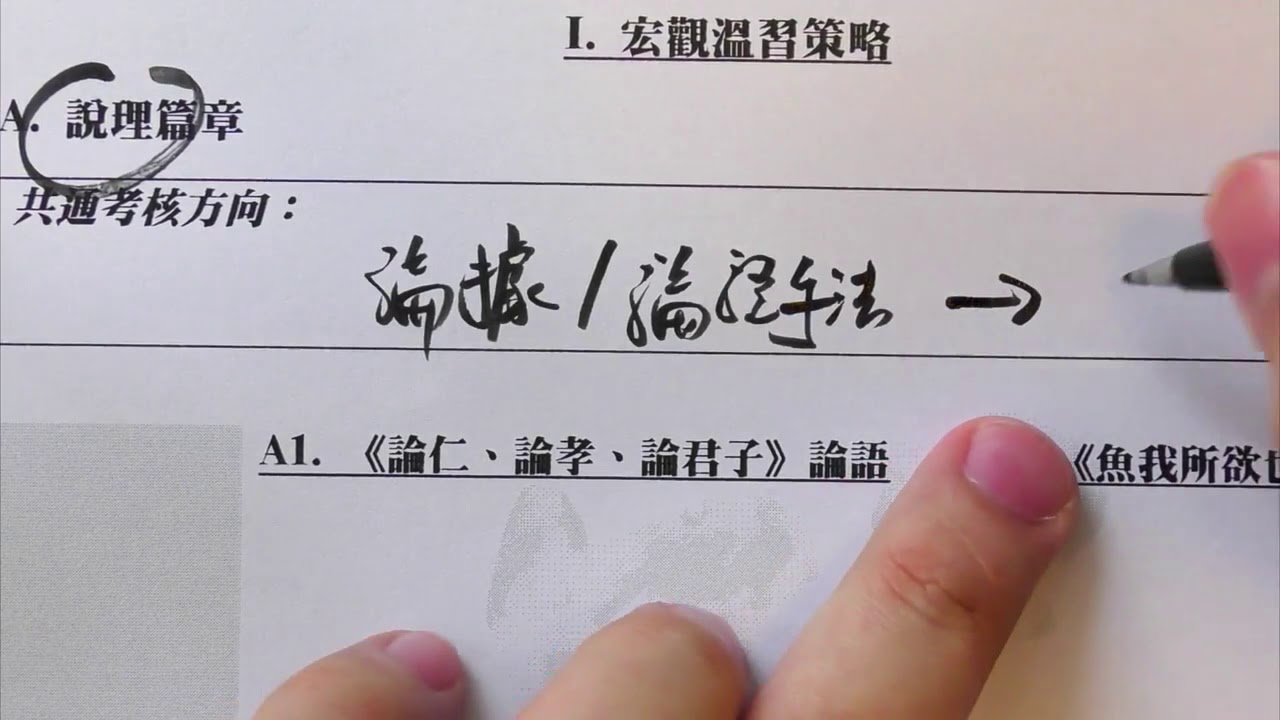 I. 宏觀溫習策略
A. 說理篇章
共通考核方向：
論據 / 論證手法 →
A1. 《論仁、論孝、論君子》論語
《魚我所欲也